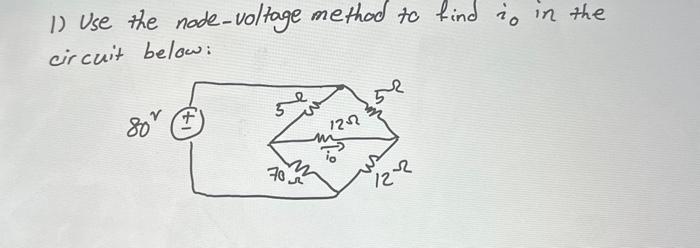 1) Use the node-voltage method to find i₀ in the
circuit below:
5Ω 5Ω
80ᵛ + − 12Ω
i₀
70Ω 12Ω